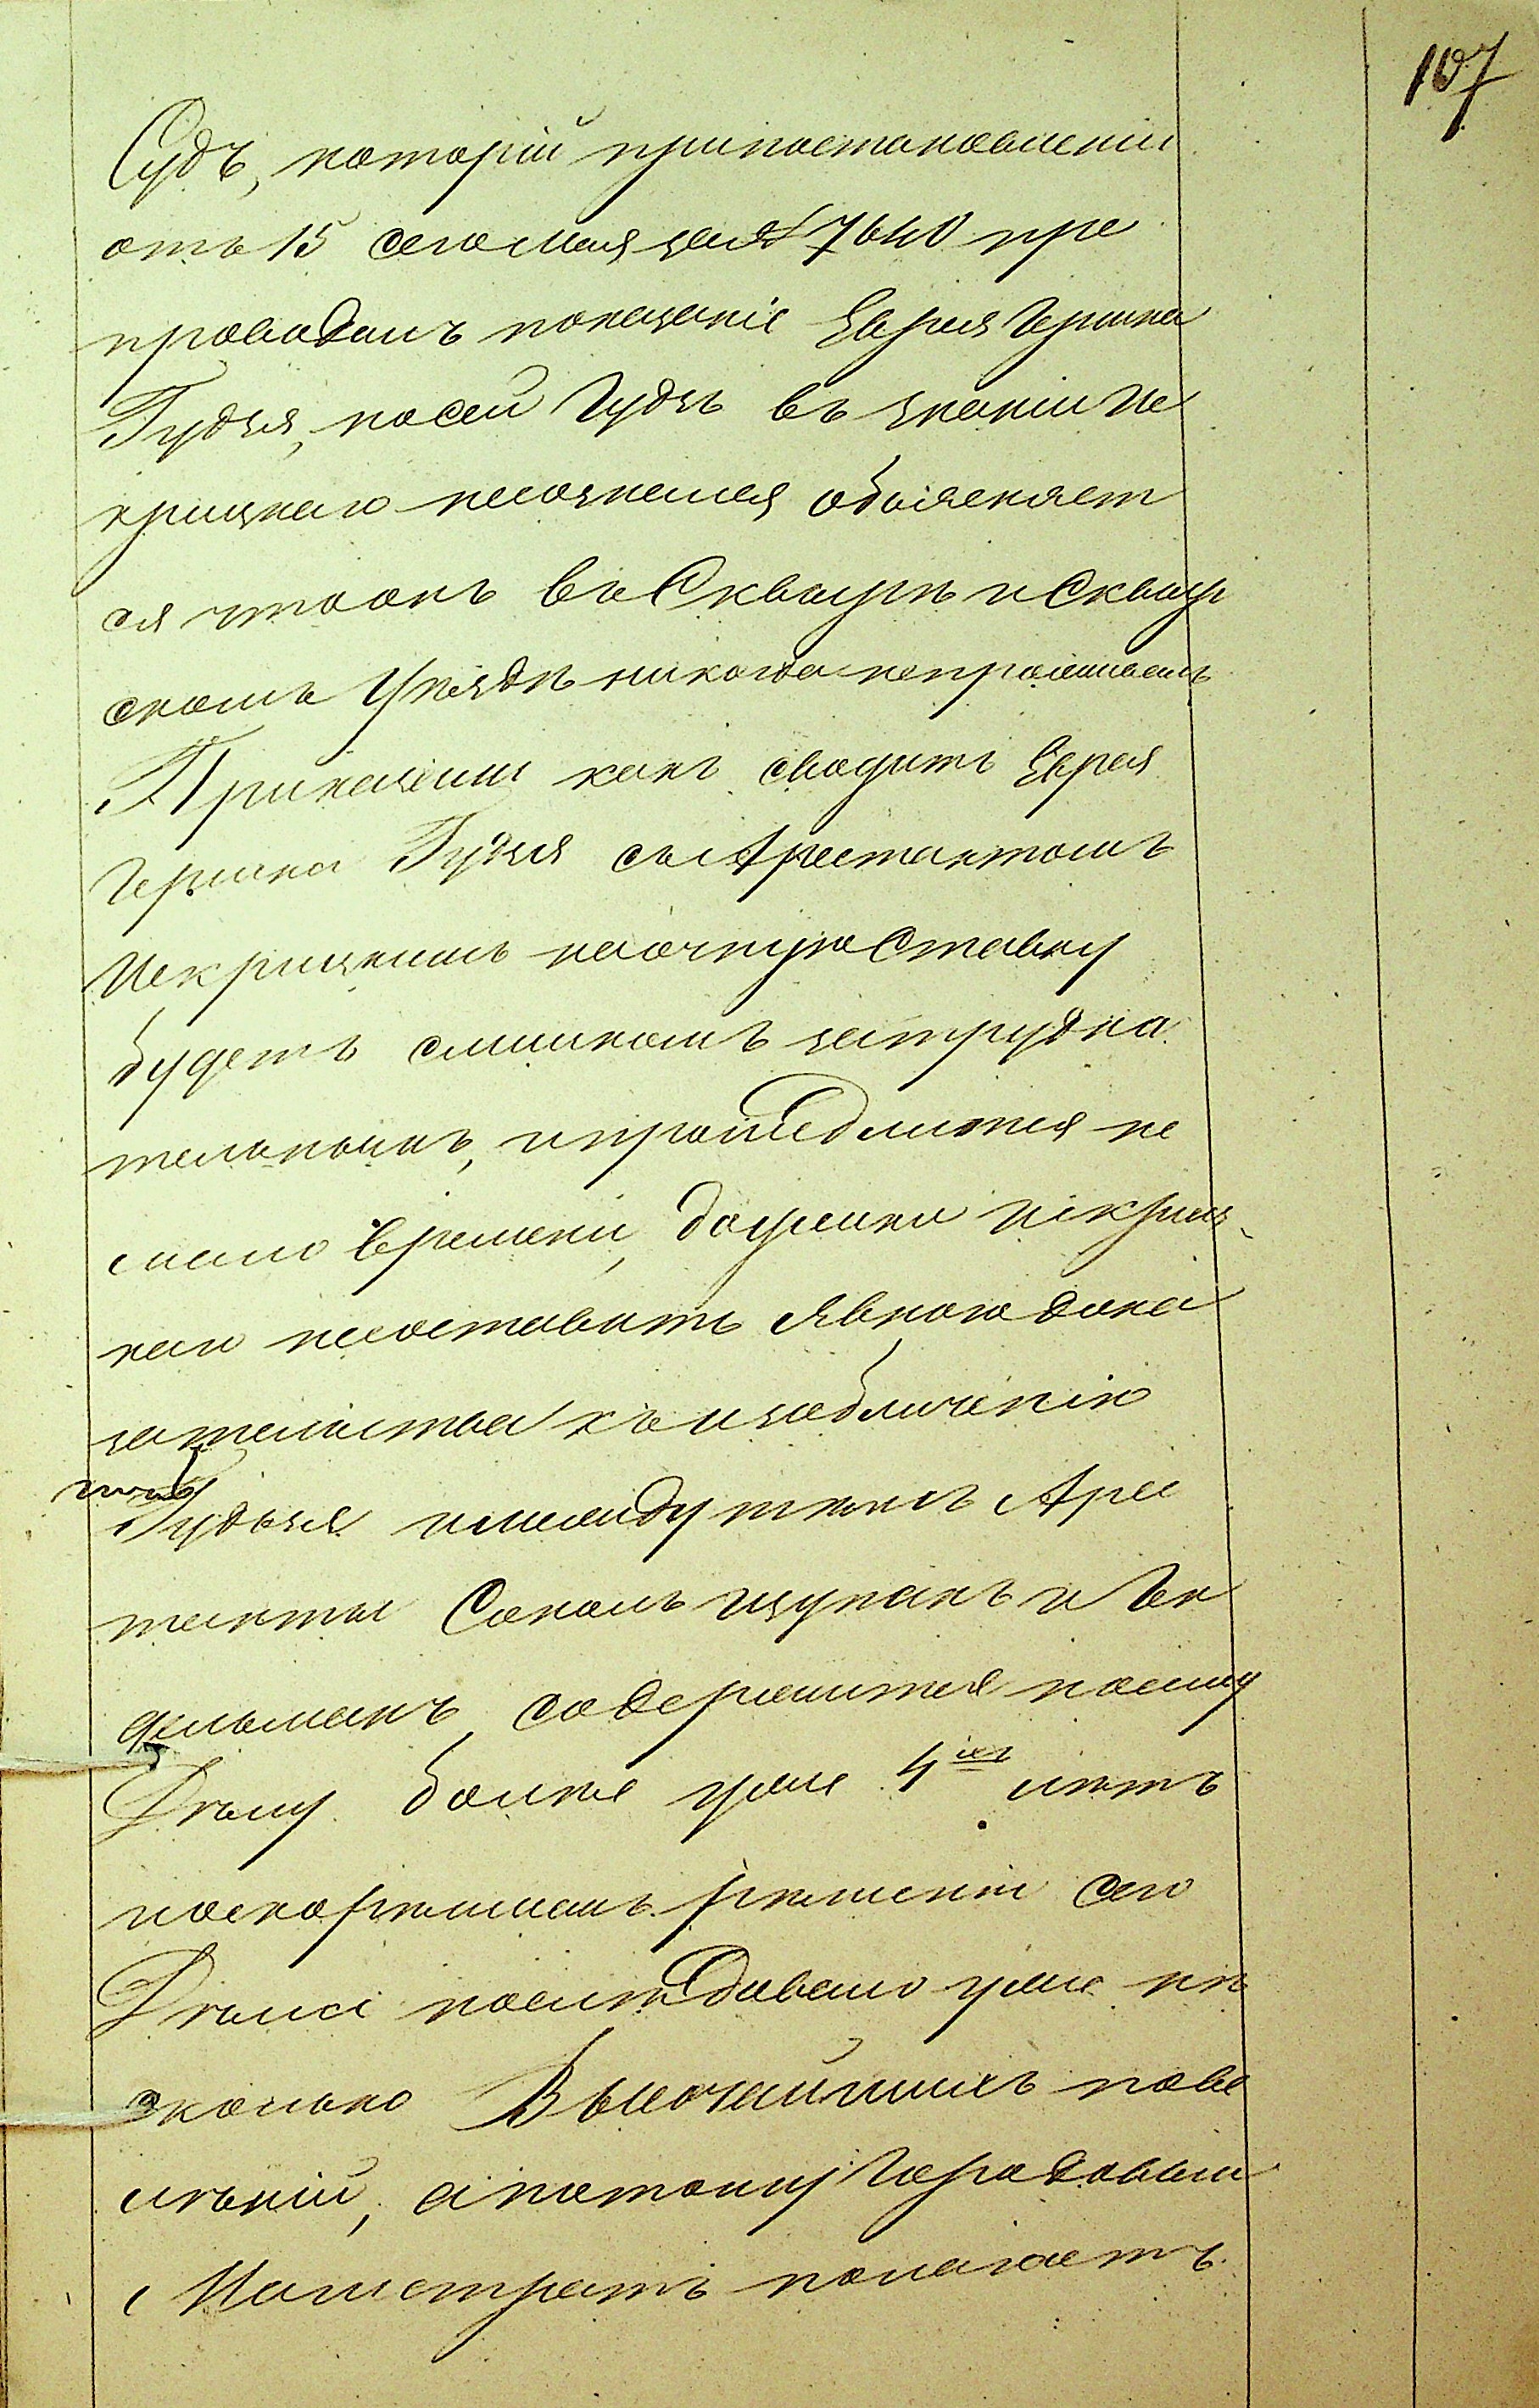 107
Судъ, которій припостановленіи
отъ 15 сего Мая за № 7640 пре
проводилъ показаніе Еврея Гершка
Гудзя, посей Гудзь въ знаніи Ис
крицкаго несознался объясняет
ся что онъ въ Сквирѣ и Сквир
скомъ Уѣздѣ никогда непроживалъ
Приказаніи какъ сводить Еврея
Гершка Гудзя съ Арестантомъ
Искрицкимъ наочную Ставку
будетъ слишкомъ затрудни
тельнымъ, и продлится не
мало времени, Искриц
каго несоставитъ Явного дока
зательства къ изобличенію
Гудзя, и между тѣмъ Арес
танты Соколъ Цуканъ и Ге
дельманъ содержится посему
Дѣлу болѣе уже 4хъ лѣтъ
поскорѣйшемъ рѣшеніи сего
Дѣла послѣдовало уже нѣ
сколько Высочайшихъ пове
лѣній, а потому Городовый
Магистратъ полагаетъ